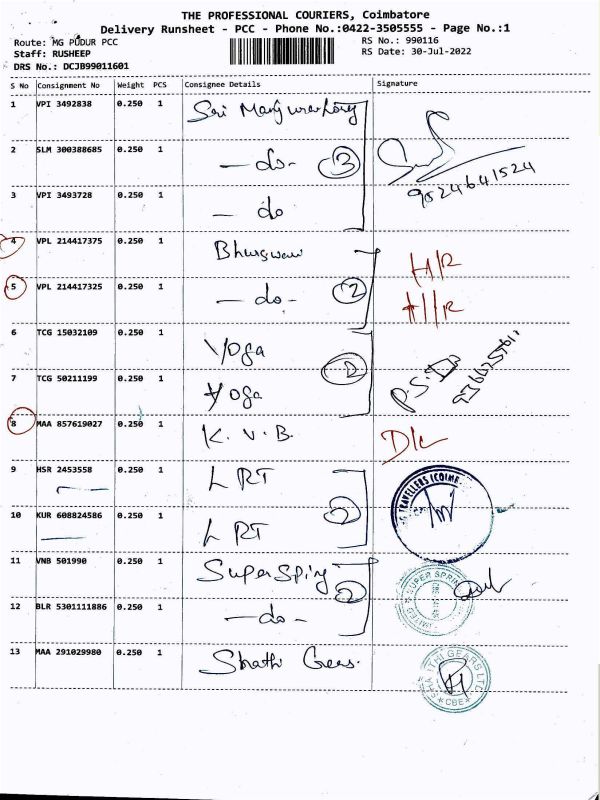 THE PROFESSIONAL COURIERS, Coimbatore
Delivery Runsheet - PCC - Phone No.:0422-3505555 - Page No.:1
Route: MG PUDUR PCC
RS No.: 990116
Staff: RUSHEEP
RS Date: 30-Jul-2022
DRS No.: DCJB99011601
S No Consignment No Weight PCS Consignee Details Signature
1 VPI 3492838 0.250 1 Sri
2 SLM 300388685 0.250 1 - do - 3
9024641524
3 VPI 3493728 0.250 1 - do
4 VPL 214417375 0.250 1
5 VPL 214417325 0.250 1 - do - 2
6 TCG 15032109 0.250 1 Yoga
7 TCG 50211199 0.250 1 Yoga
8 MAA 857619027 0.250 1 K. V. B. D/L
9 HSR 2453558 0.250 1 LRT
TRAVELLERS (COIMB
10 KUR 608824586 0.250 1 LRT 2
11 VNB 501990 0.250 1 Super Spin 2
SUPER SPIN
12 BLR 5301111886 0.250 1 - do -
13 MAA 291029980 0.250 1
THI GEARS LTD
CBE